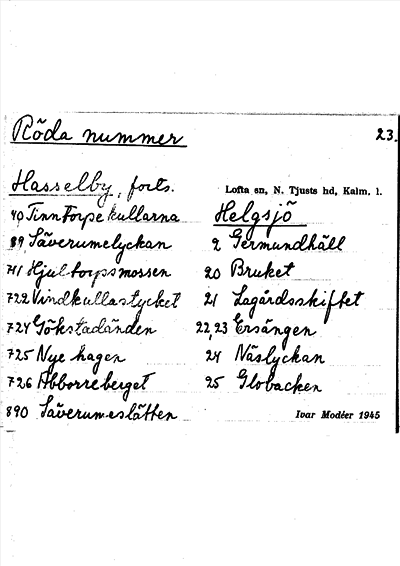 Röda nummer
23.
Hasselby, forts.
40 Tinntorpekullarna
89, Säverumelyckan
711 Hjultorpsmossen
722 Vindkullastycket
724 Gökstadänden
725 Nye hagen
726 Abborreberget
890 Säverumeslätten
Lofta sn, N. Tjusts hd, Kalm. l.
Helgsjö
2 Germundhäll
20 Bruket
21 Lagårdsskiftet
22,23 Ersängen
24 Näslyckan
25 Globacken
Ivar Modéer 1945